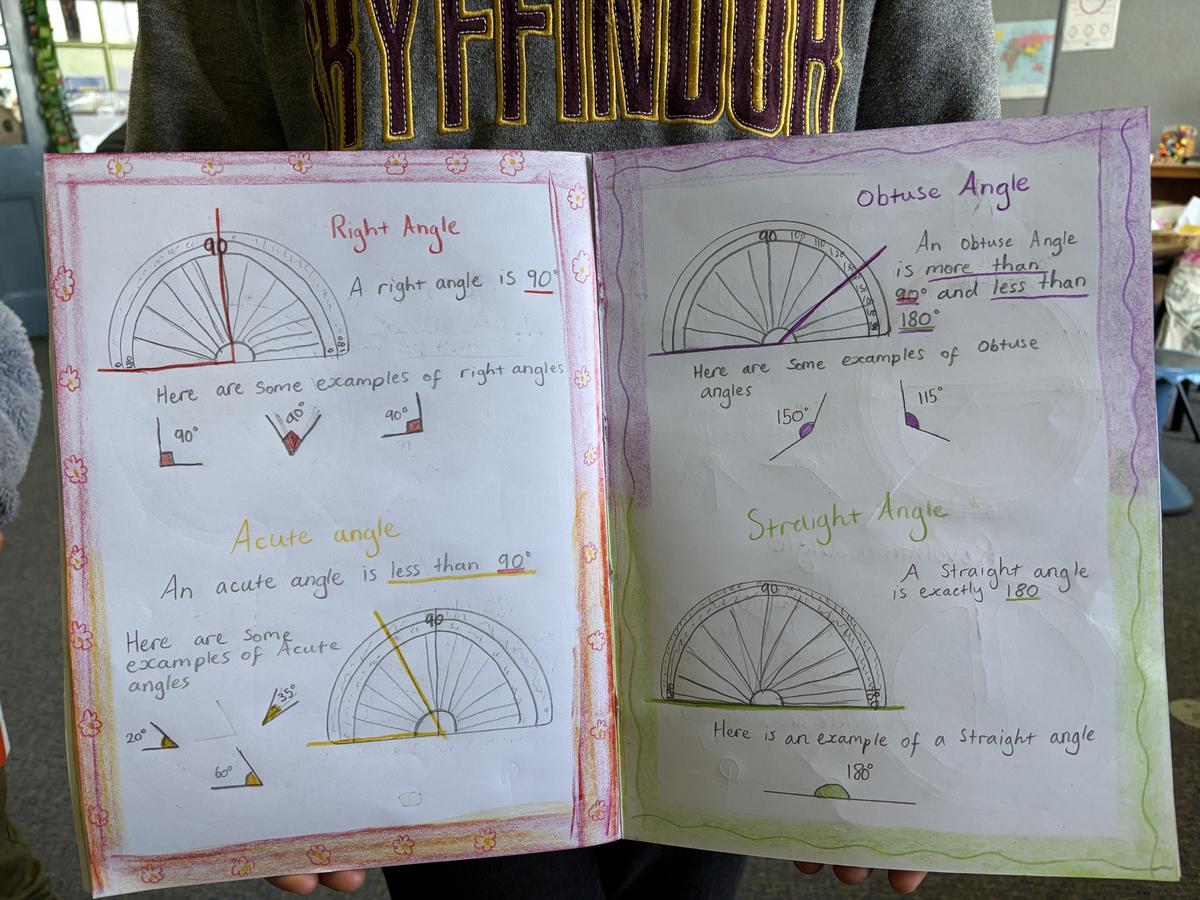 RYFFINDOR
Right Angle
90
A right angle is 90°
0 180
0 180
Here are some examples of right angles
90°
90°
90°
Acute angle
An acute angle is less than 90°
Here are some
examples of Acute
angles
90
20°
35°
60°
Obtuse Angle
90 100 110 120 130
An obtuse Angle
is more than
90° and less than
180°
Here are some examples of Obtuse
angles
150°
115°
Straight Angle
90
180
A Straight angle
is exactly 180
Here is an example of a Straight angle
180°